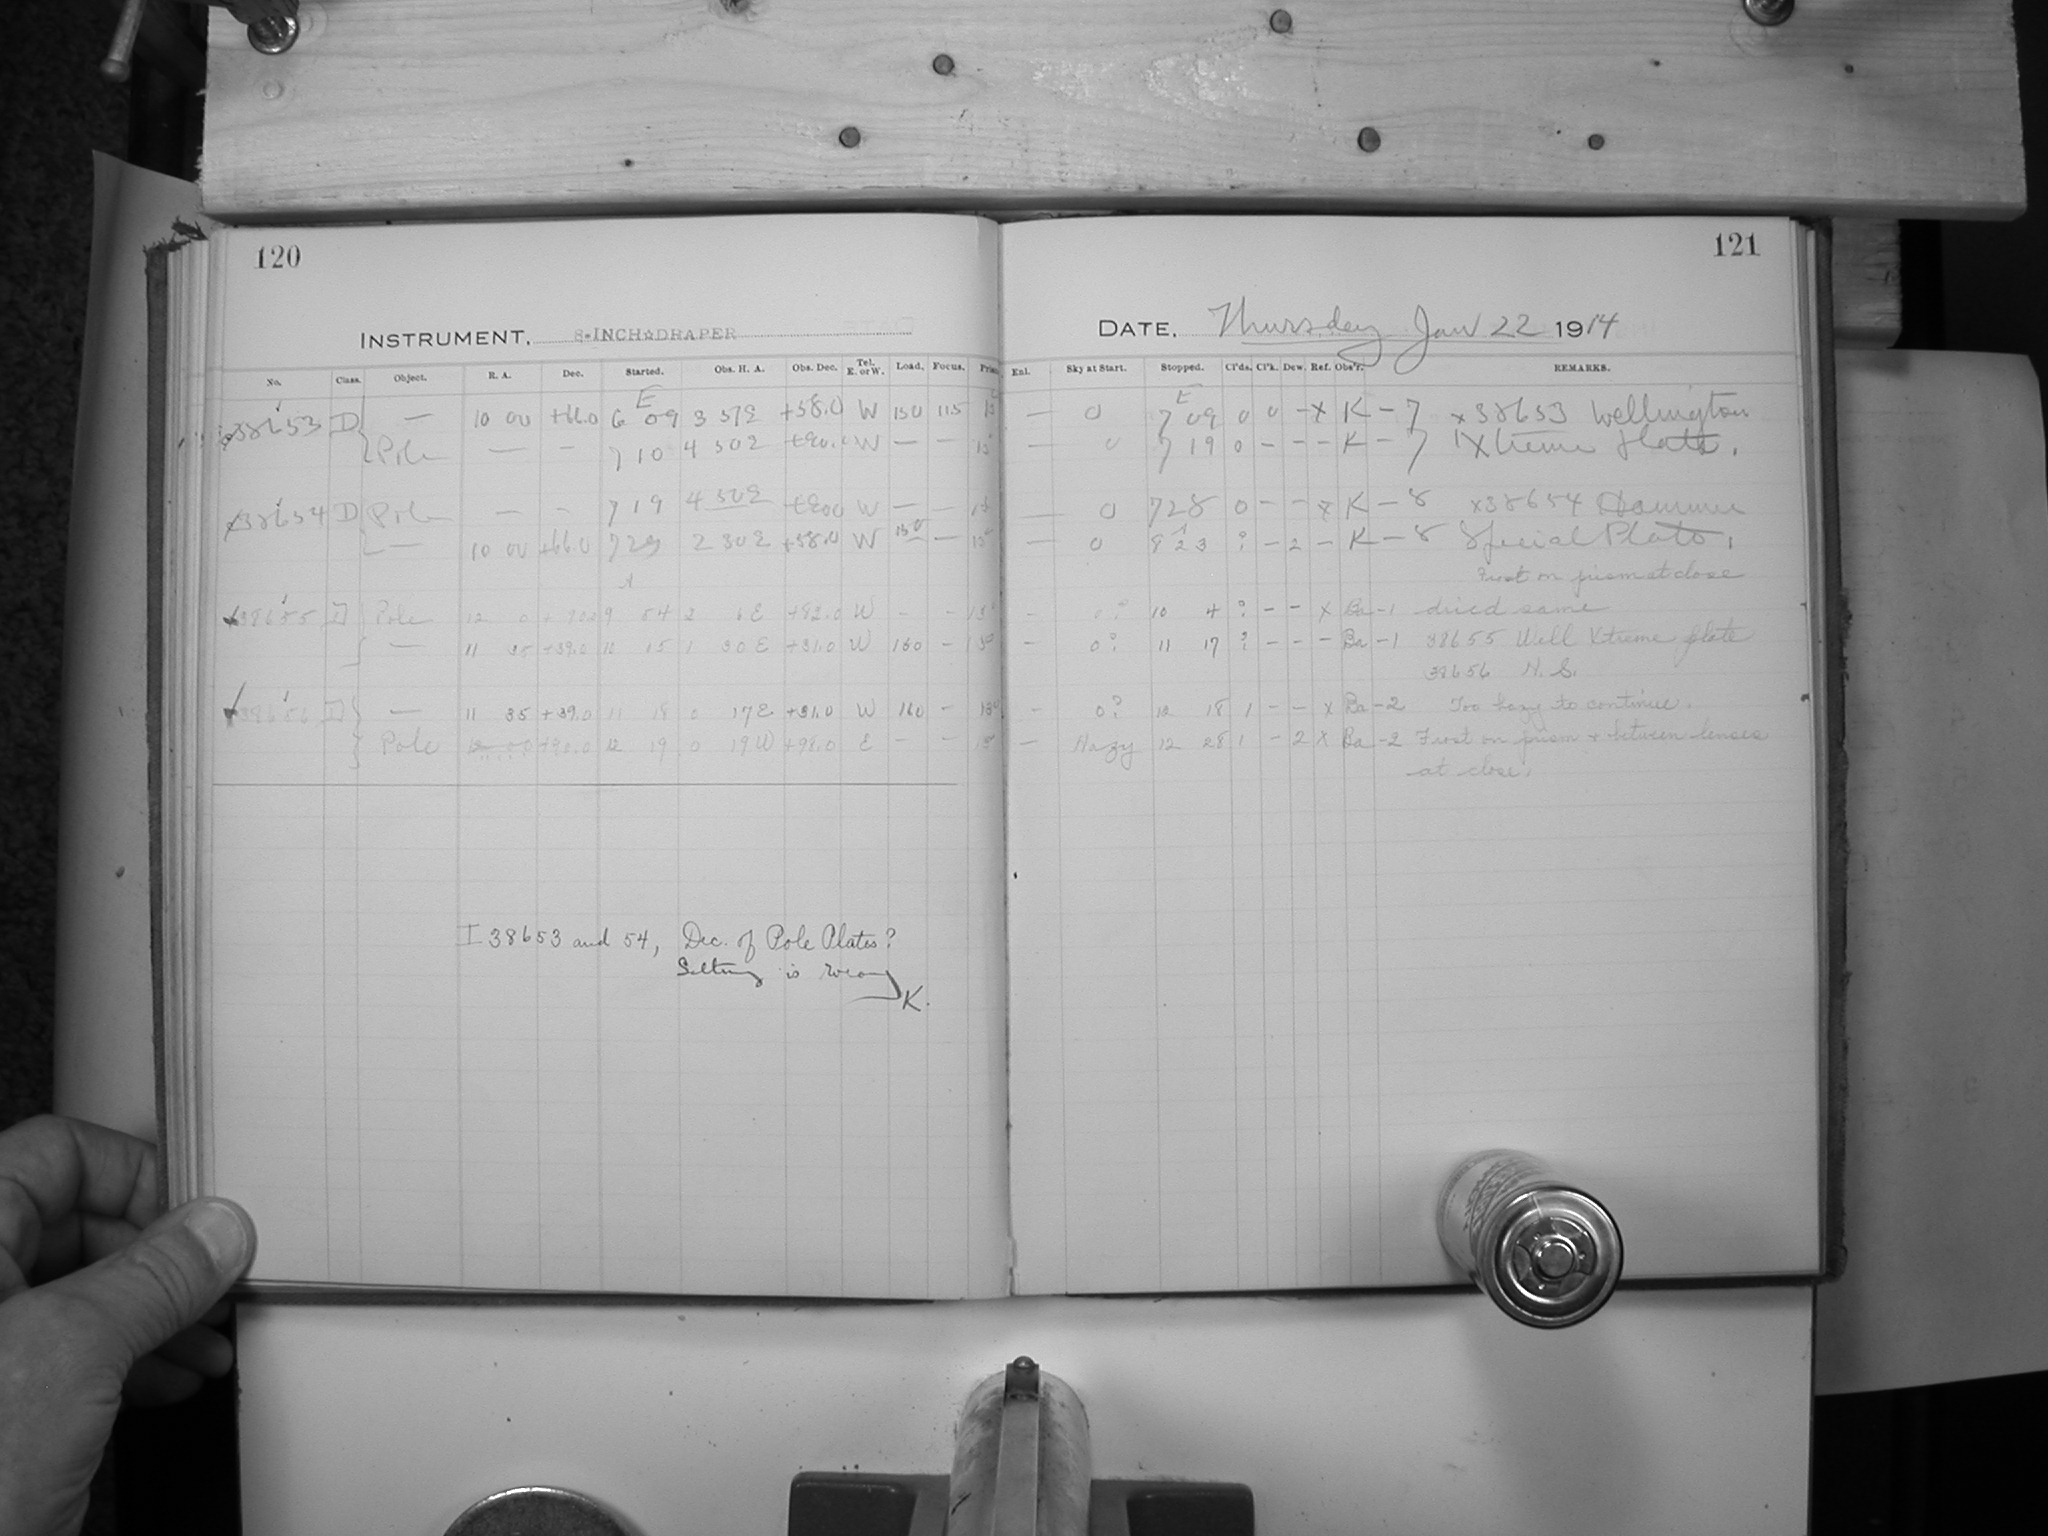 120
121
INSTRUMENT, 8-INCH☆DRAPER
DATE, Thursday Jan 22 1914
No. Class. Object. R. A. Dec. Started. Obs. H. A. Obs. Dec. Tel. E. or W. Load. Focus. Enl. Sky at Start. Stopped. Cl'ds. Cl'k. Dew. Ref. Obs'r. REMARKS.
E E
38653 D — 10 00 +66.0 6 09 3 57E +58.0 W 150 115 — 0 7 09 0 0 - x K - 7 x38653 Wellington
Pole — – 7 10 4 50E W — — — 0 7 19 0 - - - K - 7 Xtreme plate.
38654 D Pole — – 7 19 4 50E W — — 0 7 28 0 - - x K - 8 x38654 Hammer
— 10 00 +66.0 7 29 2 30E +58.0 W 150 — — 0 9 23 ? - 2 - K - 8 Special Plate.
Frost on prism at close
38655 D Pole 12 0 9 54 2 6E W - - - 0? 10 4 ? - - x Ba -1 dried same
— 11 35 +39.0 10 15 1 30E +31.0 W 160 - - 0? 11 17 ? - - - Ba -1 38655 Well Xtreme plate
38656 N. S.
38656 D — 11 35 +39.0 11 18 0 17E +31.0 W 160 - - 0? 12 18 1 - - x Ba -2 Too hazy to continue.
Pole 12 00 +90.0 12 19 0 19W E - - — Hazy 12 28 1 - 2 x Ba -2 Frost on prism + between lenses
at close.
I 38653 and 54, Dec. of Pole Plates?
Setting is wrong
K.